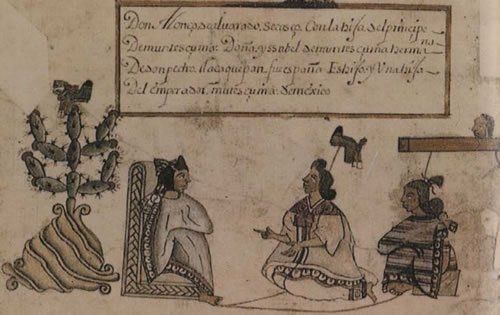 Don Alonço de alvarado, se caso, Con la hija del principe
De mutesçuma, Doña ysabel de mutesçuma hermana
De don pedro tlacaguepan fue españa Es hijo y Una hija
Del emperador, mutesçuma de mexico